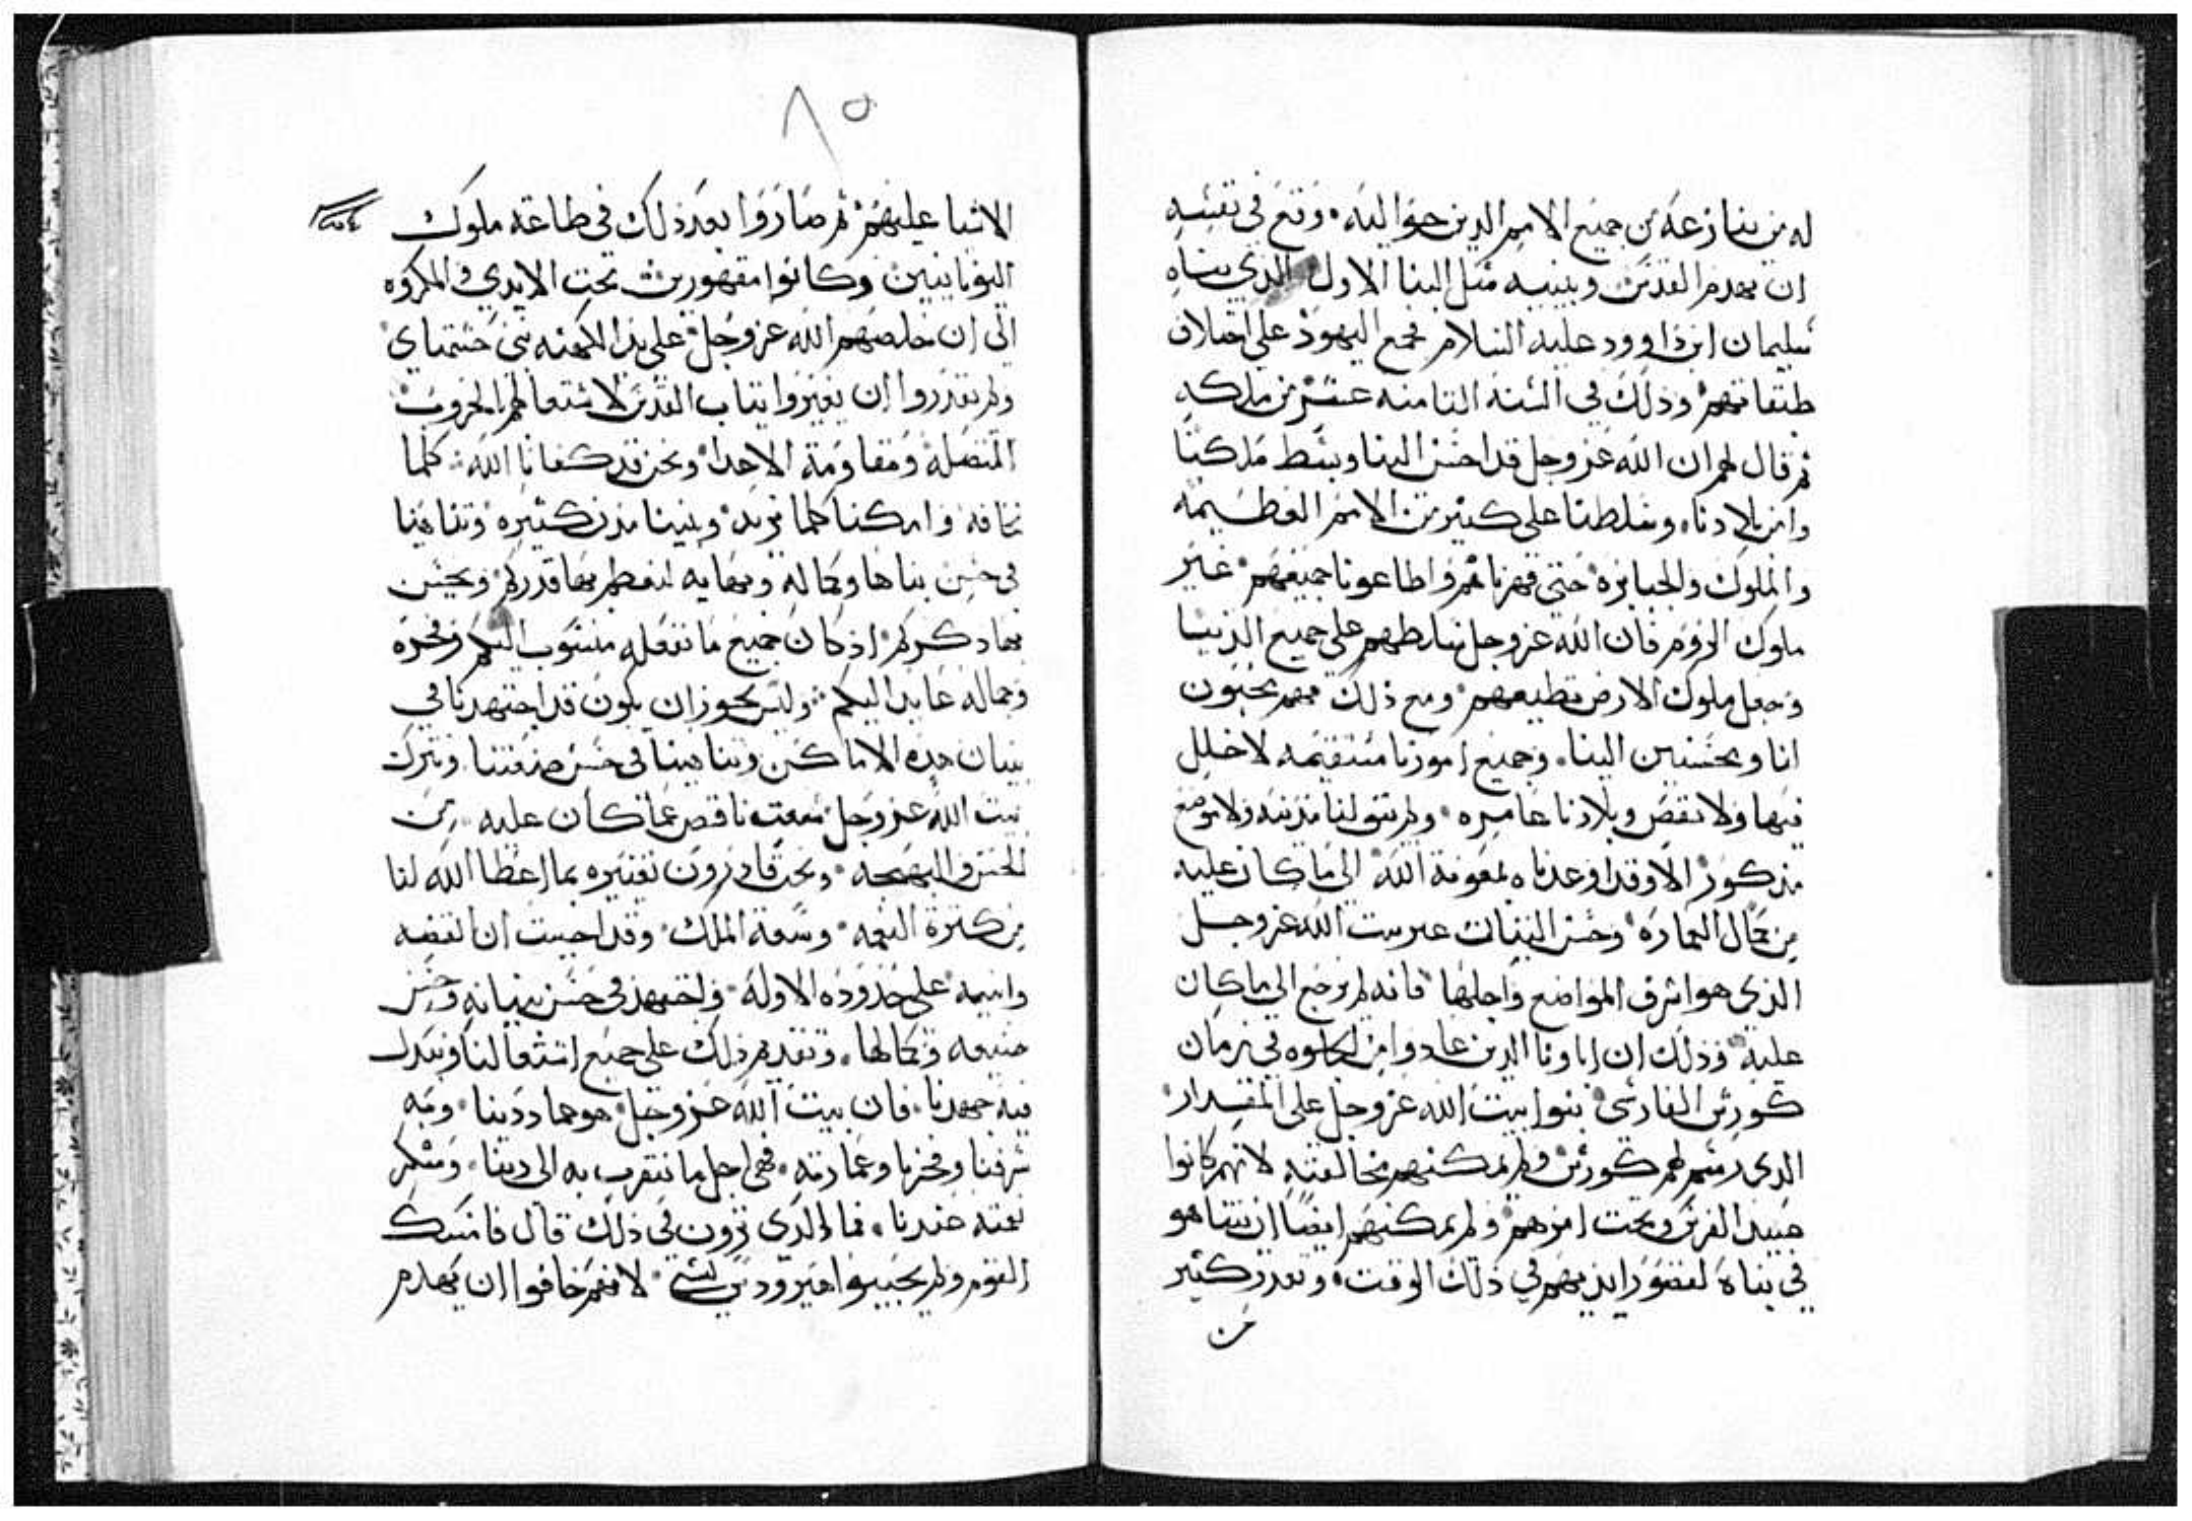 له من ينازعه من جميع الامم الدين حواليه وقع في نفسه
ان يهدم القدس ويبنيه مثل البنا الاول الذي بناه
سليمان ابن داوود عليه السلام فجمع اليهود على اختلاف
طبقاتهم وذلك في السنه الثامنه عشر من ملكه
ثم قال لهم ان الله عز وجل قد احسن الينا وبسط ملكنا
وامن بلادنا وسلطنا على كثير من الامم العظيمه
والملوك والجبابره حتى قهرناهم واطاعونا جميعهم غير
ملوك الروم فان الله عز وجل سلطهم على جميع الدنيا
وجعل ملوك الارض تطيعهم ومع ذلك فهم محبون
لنا ومحسنين الينا وجميع امورنا مستقيمه لا خلل
فيها ولا نقص وبلادنا عامره ولم تبق لنا مدينه ولا موضع
مذكور الا وقد اعدناه بمعونة الله الى ما كان عليه
من كمال العماره وحسن البنيان غير بيت الله عز وجل
الذي هو اشرف المواضع واجلها فانه لم يرجع الى ما كان
عليه وذلك ان اباونا الدين عادوا من الجلوه في زمان
كورش الفارسي بنوا بيت الله عز وجل على المقدار
الدي رسم لهم كورش ولم يمكنهم مخالفته لانهم كانوا
عبيد الفرس وتحت امرهم ولم يمكنهم ايضا ان يتناهو
في بناه لقصور ايديهم في ذلك الوقت وتعدر كثير
من
٨٥
الاشيا عليهم ثم صاروا بعد ذلك في طاعة ملوك
اليونانيين وكانوا مقهورين تحت الايدي والمكروه
الى ان خلصهم الله عز وجل على يد الكهنه بني حشمناي
ولم يقدروا ان يغيروا بناب القدس لاشتغالهم بالحروب
المتصله ومقاومة الاعدا ونحن قد كفانا الله كلما
نخافه وامكنا كلما نريد وبنينا مدن كثيره وتناهينا
في حسن بناها وكماله وبهايه لنعظم بها قدركم ويحسن
بها دكركم اذ كان جميع ما نفعله منسوب اليكم وفخره
وجماله عايد اليكم وليس يجوز ان يكون قد اجتهدنا في
بنيان هده الاماكن وتناهينا في حسن صنعتنا ونترك
بيت الله عز وجل ناقص عما كان عليه من
الحسن والبهجه ونحن قادرون نغيره بما اعطا الله لنا
من كثرة النعمه وسعة الملك وقد احببت ان انقضه
وابنيه على حدوده الاوله واجتهد في حسن بنيانه وحسن
صنيعه وكمالها ونقدم ذلك على جميع اشتغالنا ونبدل
فيه جهدنا فان بيت الله عز وجل هو عماد ديننا وبه
شرفنا وفخرنا وعمارته فهي اجل ما نتقرب به الى ربنا ونشكر
نعمته عندنا فما الذي ترون في ذلك قال فامسك
القوم ولم يجيبوا هيرودس بشي لانهم خافوا ان يهدم